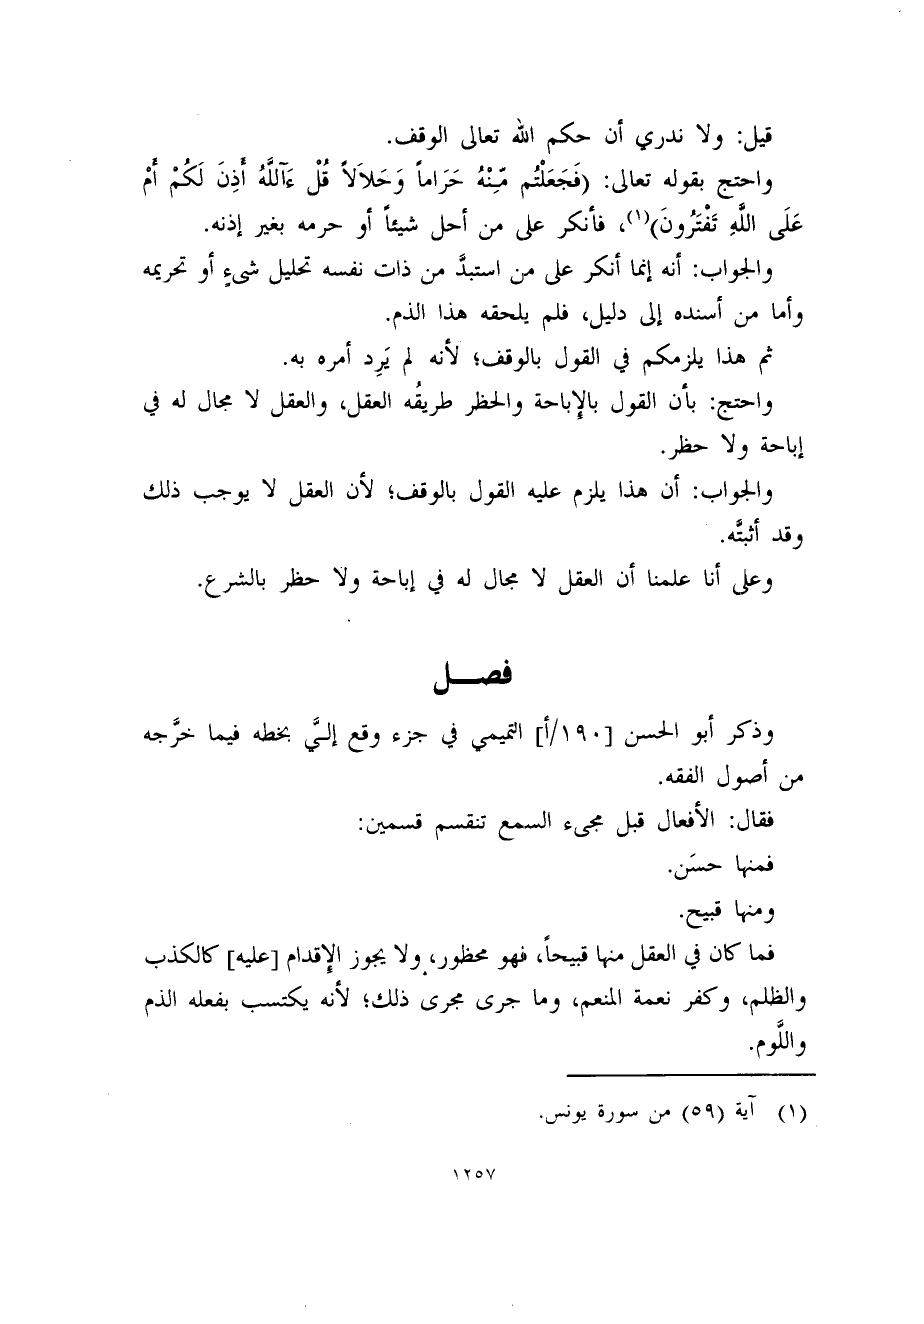 قيل: ولا ندري أن حكم الله تعالى الوقف.
واحتج بقوله تعالى: (فَجَعَلْتُم مِّنْهُ حَرَاماً وَحَلاَلاً قُلْ ءَآللَّهُ أَذِنَ لَكُمْ أَمْ
عَلَى اللَّهِ تَفْتَرُونَ)(١)، فأنكر على من أحل شيئاً أو حرمه بغير إذنه.
والجواب: أنه إنما أنكر على من استبدَّ من ذات نفسه تحليل شيءٍ أو تحريمه
وأما من أسنده إلى دليل، فلم يلحقه هذا الذم.
ثم هذا يلزمكم في القول بالوقف؛ لأنه لم يَرِد أمره به.
واحتج: بأن القول بالإباحة والحظر طريقُه العقل، والعقل لا مجال له في
إباحة ولا حظر.
والجواب: أن هذا يلزم عليه القول بالوقف؛ لأن العقل لا يوجب ذلك
وقد أثبتَّه.
وعلى أنا علمنا أن العقل لا مجال له في إباحة ولا حظر بالشرع.
فصـــل
وذكر أبو الحسن [١٩٠/أ] التميمي في جزء وقع إلـيَّ بخطه فيما خرَّجه
من أصول الفقه.
فقال: الأفعال قبل مجىء السمع تنقسم قسمين:
فمنها حسَن.
ومنها قبيح.
فما كان في العقل منها قبيحاً، فهو محظور، ولا يجوز الإقدام [عليه] كالكذب
والظلم، وكفر نعمة المنعم، وما جرى مجرى ذلك؛ لأنه يكتسب بفعله الذم
واللَّوم.
(١) آية (٥٩) من سورة يونس.
١٢٥٧